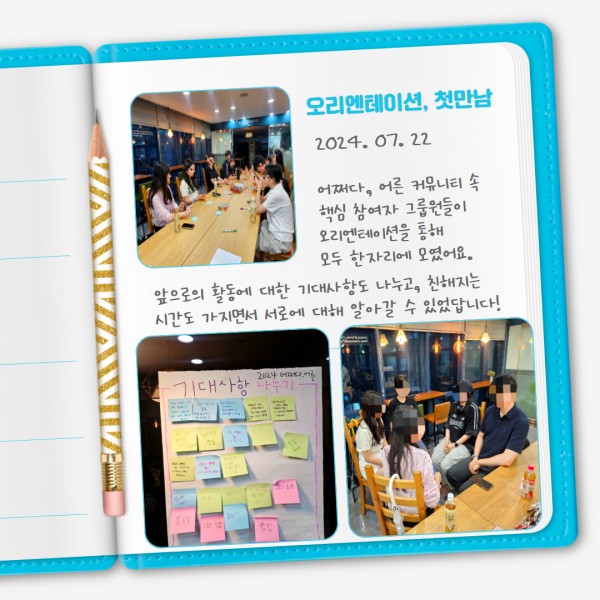 오리엔테이션, 첫만남
2024. 07. 22
어쩌다, 어른 커뮤니티 속
핵심 참여자 그룹원들이
오리엔테이션을 통해
모두 한자리에 모였어요.
앞으로의 활동에 대한 기대사항도 나누고, 친해지는
시간도 가지면서 서로에 대해 알아갈 수 있었답니다!
2024 어쩌다,어른
기대사항 나누기